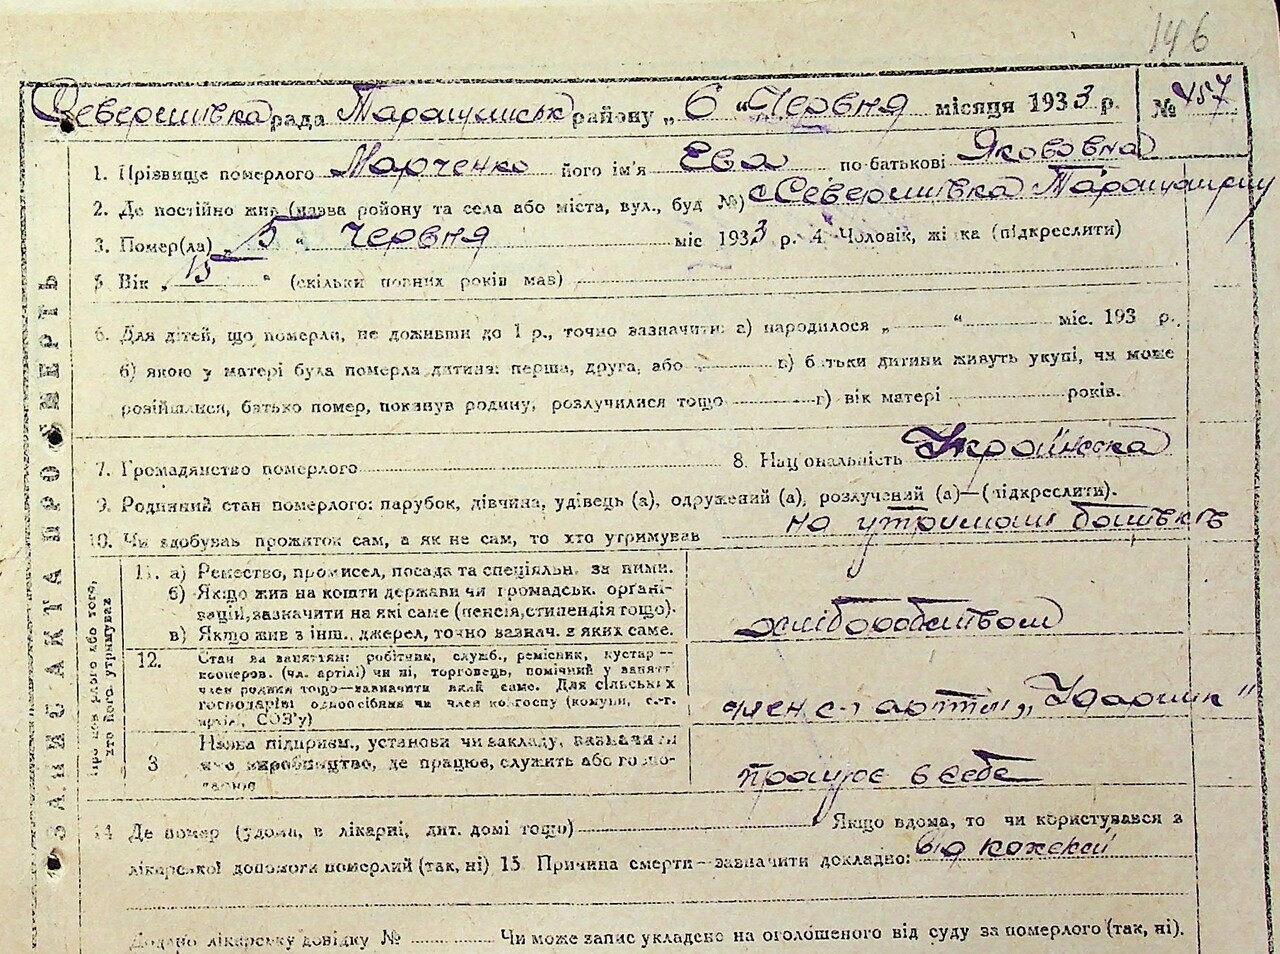 146
Северинівка рада Таращанськ району „ 6 “ Червня місяця 1933 р. № 457
1. Прізвище померлого Марченко його ім'я Ева по-батькові Якововна
2. Де постійно жив (назва району та села або міста, вул., буд №) с Северинівка
3. Помер(ла) „ 5 “ Червня міс 1933 р. 4. Чоловік, жінка (підкреслити)
5 Вік „ 15 “ (скільки повних років мав)
6. Для дітей, що померли, не доживши до 1 р., точно зазначити: а) народилося „ “ міс. 193 р.
б) якою у матері була померла дитина: перша, друга, або в) батьки дитини живуть укупі, чи може
розійшлися, батько помер, покинув родину, розлучилися тощо г) вік матері років.
7. Громадянство померлого 8. Національність Українська
9. Родинний стан померлого: парубок, дівчина, удівець (а), одружений (а), розлучений (а)—(підкреслити).
10. Чи здобував прожиток сам, а як не сам, то хто утримував на утримані батьків
ЗАПИС АКТА ПРО СМЕРТЬ
Про померлого або того, хто його утримував
11. а) Ремество, промисел, посада та спеціяльн. за ними.
б) Якщо жив на кошти держави чи громадськ. орґані-
зацій, зазначити на які саме (пенсія, стипендія тощо).
в) Якщо жив з інш. джерел, точно зазнач. з яких саме. хліборобством
12. Стан за заняттям: робітник, служб., ремісник, кустар—
кооперов. (чл. артілі) чи ні, торговець, помічний у занятті
член родини тощо—зазначити який саме. Для сільських
господарів: одноосібник чи член колгоспу (комуни, с.-г.
артілі, СОЗ'у) член с-г артілі „Ударник“
3 Назва підприєм., установи чи закладу, зазначити
його виробництво, де працює, служить або госпо-
дарює працює в себе
14 Де помер (удома, в лікарні, дит. домі тощо) Якщо вдома, то чи користувався з
лікарської допомоги померлий (так, ні) 15 Причина смерти—зазначити докладно: від
Додано лікарську довідку № Чи може запис укладено на оголошеного від суду за померлого (так, ні).